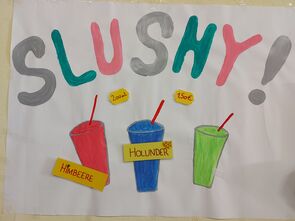 SLUSHY!
200ml
1,50€
HOLUNDER
HIMBEERE